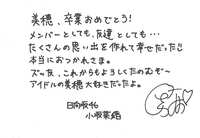 美穂、卒業おめでとう！
メンバーとしても、友達としても…
たくさんの思い出を作れて幸せだった！
本当におつかれさま。
ズッ友、これからもよろしくたのむぞ〜
アイドルの美穂大好きだったよ。
日向坂46
小坂菜緒